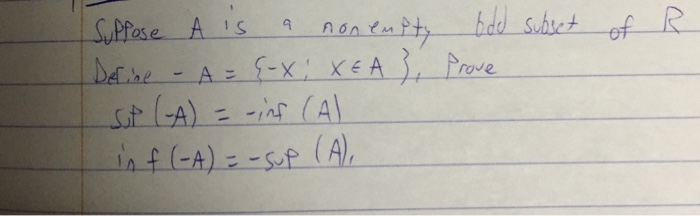 Suppose A is a nonempty bdd subset of R
Define -A = {-x : x ∈ A}, Prove
sup (-A) = -inf (A)
inf (-A) = -sup (A),